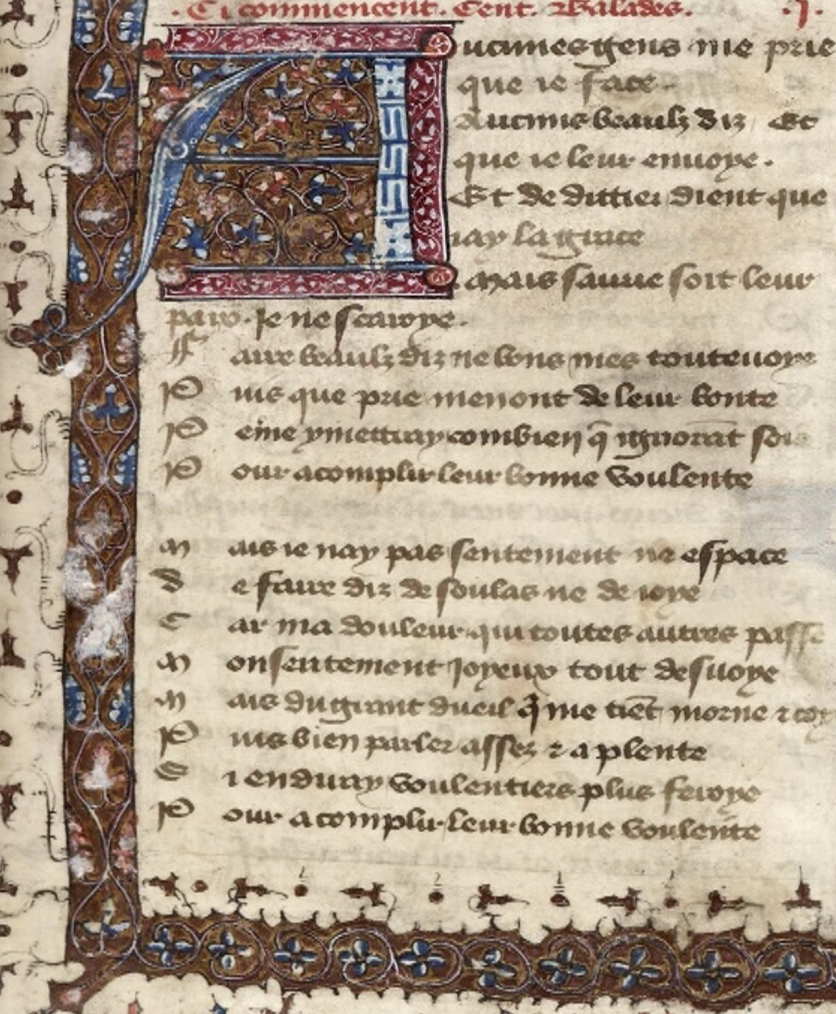 .Ci commencent. Cent. Balades. .j.
Aucunes gens me prie
que ie face.
Aucuns beaulz diz Et
que ie leur enuoye.
Et de dittier dient que
iay la grace
Mais sauue soit leur
paix. Je ne scaroye.
Faire beaulz diz ne bons mes toutevoye
Puis que prie men ont de leur bonte
Peine y mettray combien q̄ ignorāt soie
Pour acomplir leur bonne voulente
Mais ie nay pas sentement ne espace
De faire diz de soulas ne de ioye
Car ma douleur qui toutes autres passe
Mon sentement joyeux tout desuoye
Mais du grant dueil q̄ me tiēt morne ⁊ coy
Puis bien parler assez ⁊ a plente
Si en diray voulentiers plus feroye
Pour acomplir leur bonne voulente